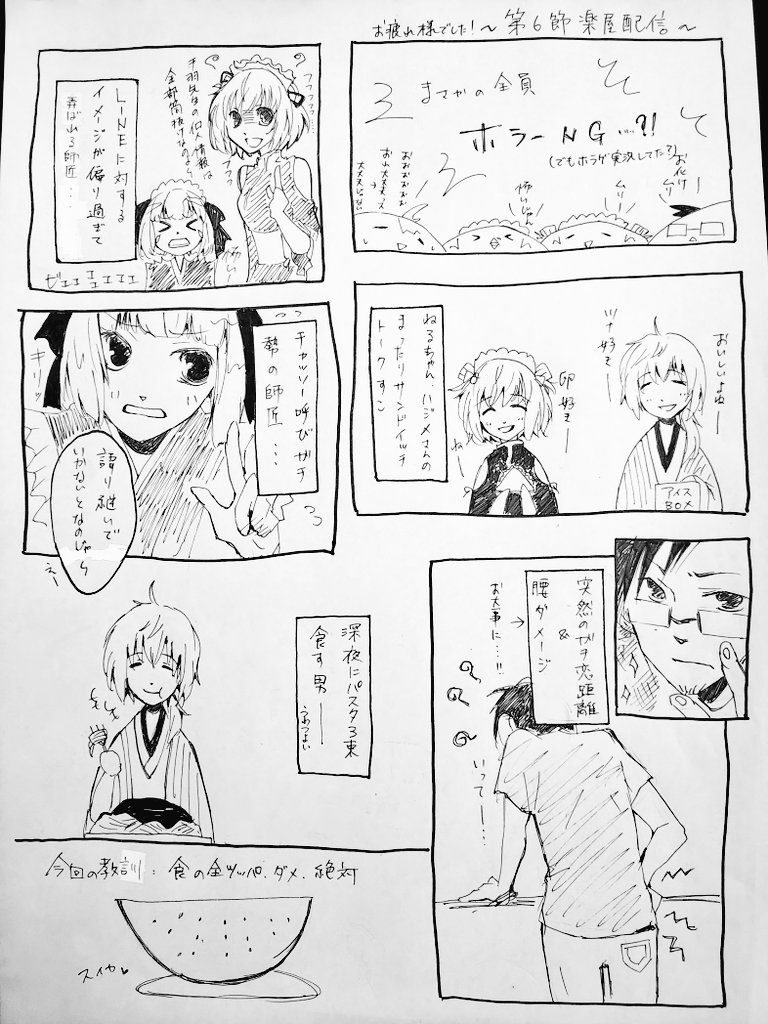 お疲れ様でした!~第6節楽屋配信~
まさかの全員
ホラーNG…?!
(でもホラゲ実況してた?)
お化け
ムリー
ムリー
怖いじゃん
おおおおおお
おれ大丈夫
→
大丈夫じゃない
フフフフフ…
フフッ
千羽先生の個人情報は
全部筒抜けなのじゃ
怖い
LINEに対する
イメージが偏り過ぎて
弄ばれる師匠…
ゼエエエエエエエ
おいしいよねー
ツナ好きー
卵好きー
ねー
アイス
BOX
ねるちゃん、ハジメさんの
まったりサンドイッチ
トークすこ
チャッソー呼びガチ
勢の師匠…
キリッ
語り継いで
いかないとなのじゃ
突然のガチ恋距離
&
腰ダメージ
→
お大事に…!!
いってー…
深夜にパスタ3束
食す男ー
うわつよい
今回の教訓:食の全ツッパ、ダメ、絶対
スイカ